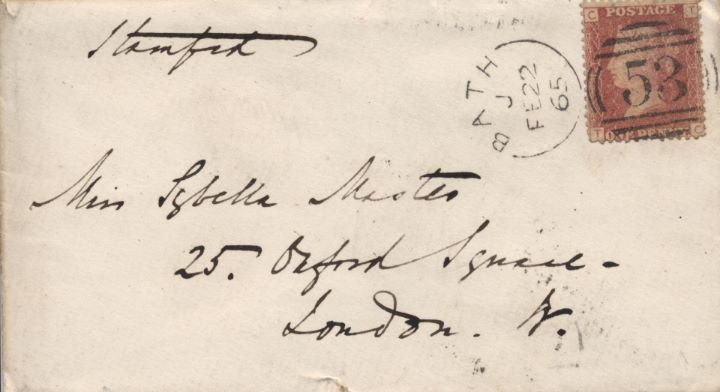 Stamford
BATH
J
FE 22
65
C POSTAGE T
53
T ONE PENNY C
Miss Sybella Master
25. Oxford Square -
London. W.